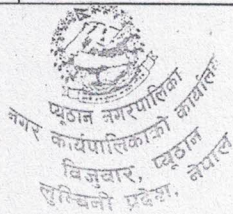 प्यूठान नगरपालिका
नगर कार्यपालिकाको कार्यालय
विजुवार, प्यूठान
लुम्बिनी प्रदेश, नेपाल